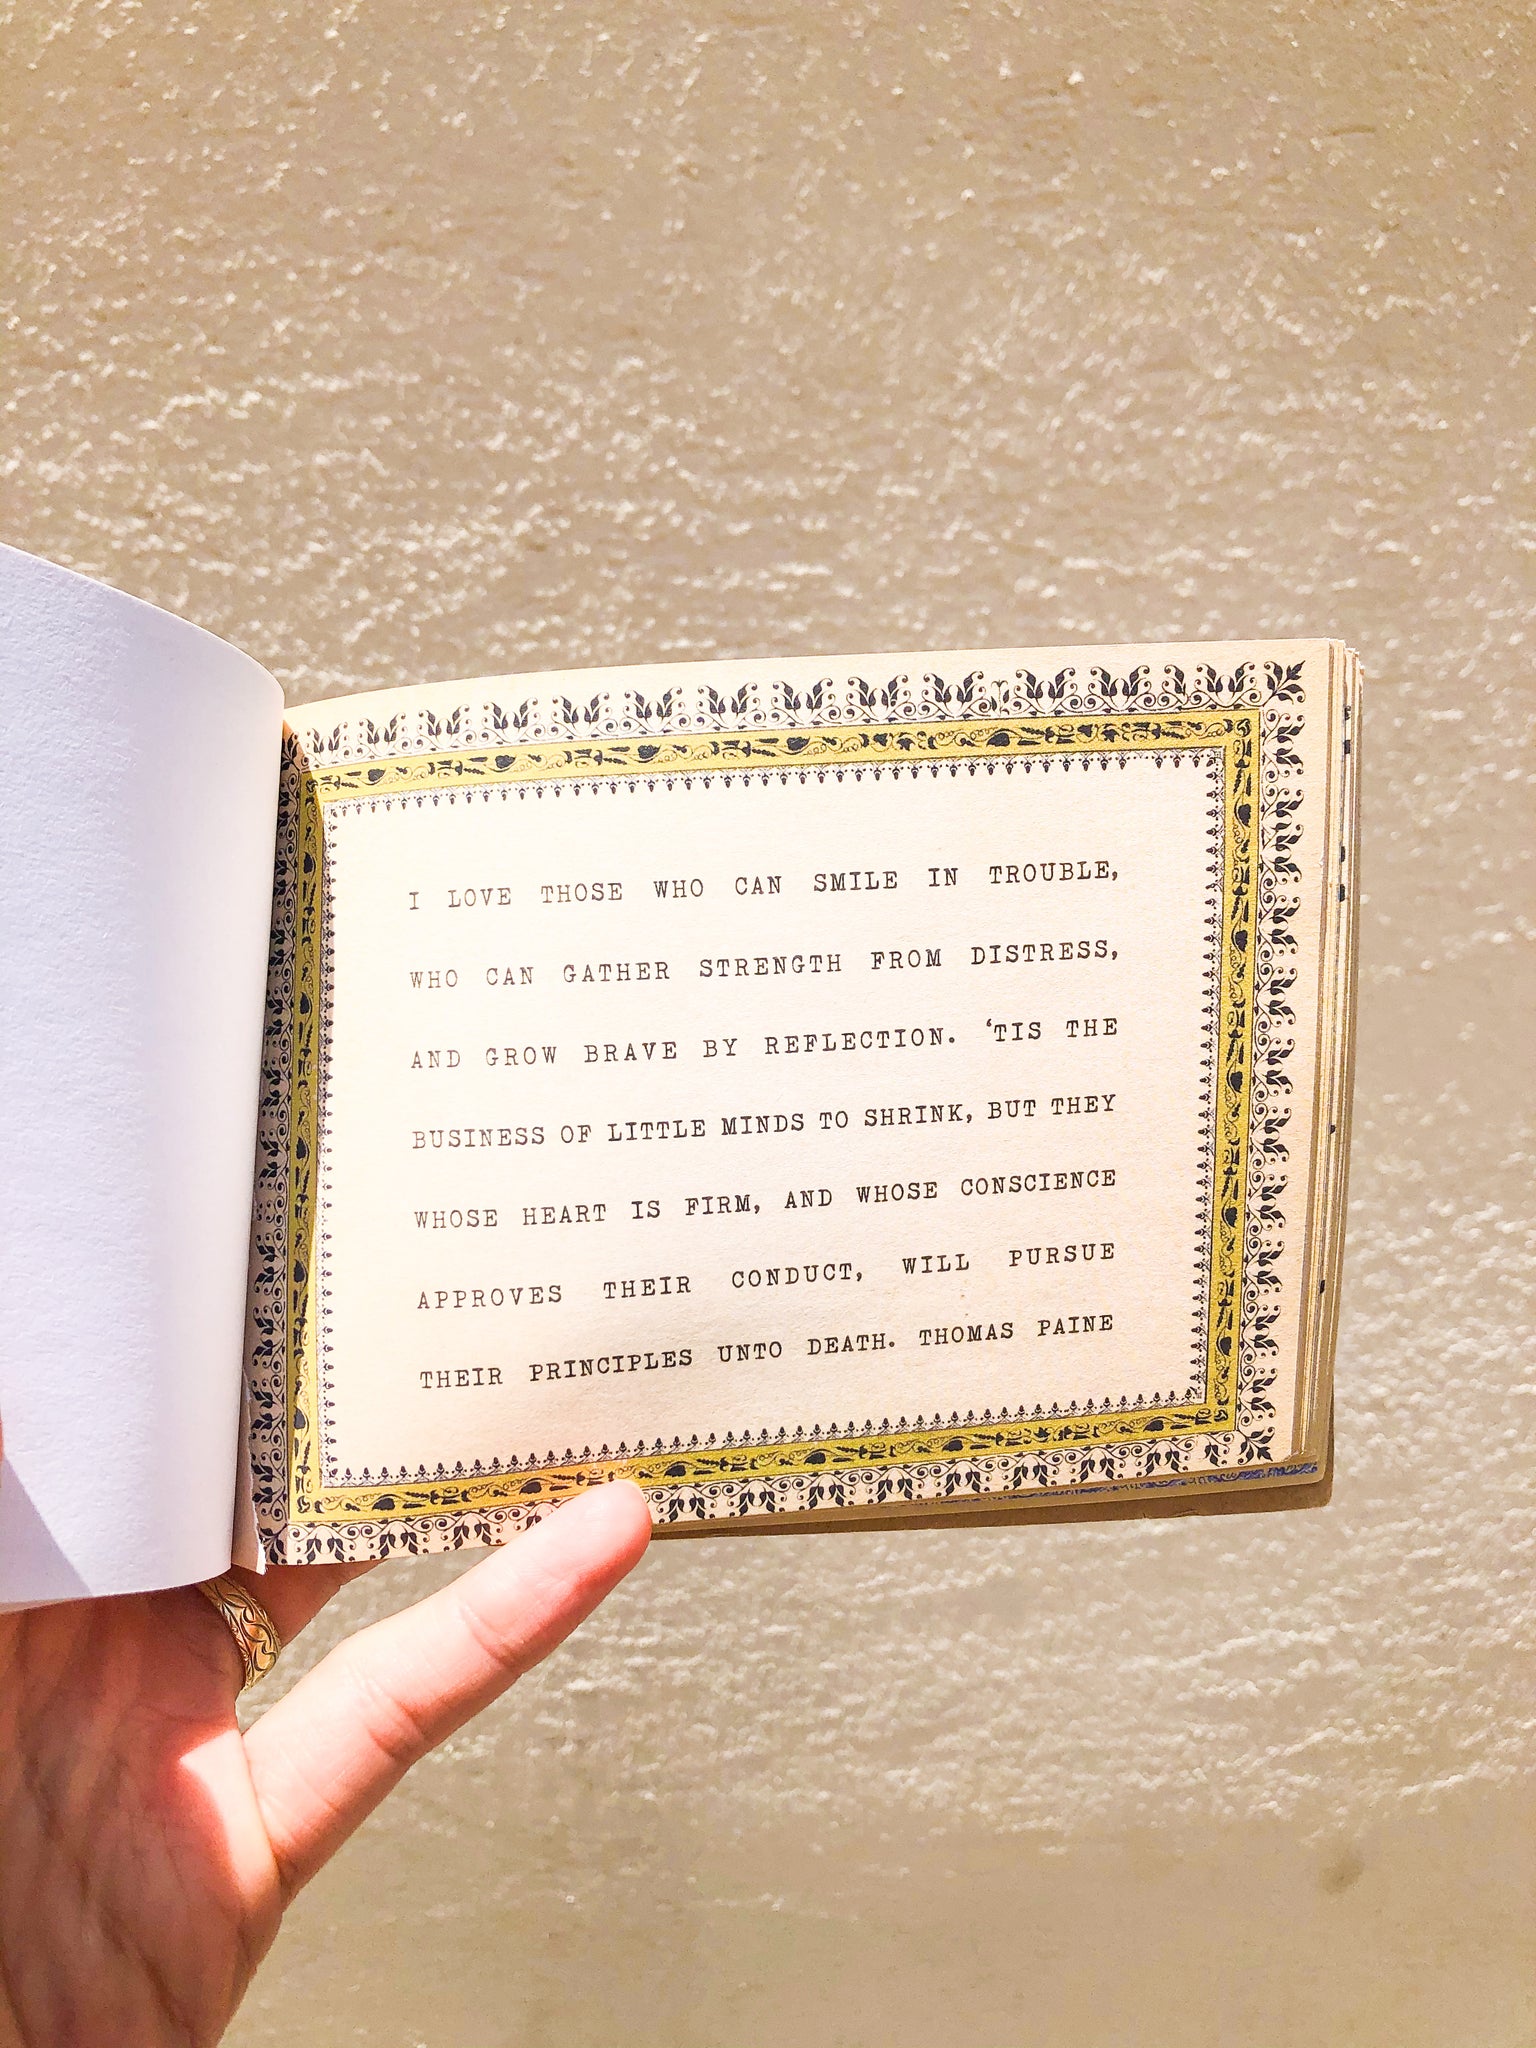 I LOVE THOSE WHO CAN SMILE IN TROUBLE,
WHO CAN GATHER STRENGTH FROM DISTRESS,
AND GROW BRAVE BY REFLECTION. ‘TIS THE
BUSINESS OF LITTLE MINDS TO SHRINK, BUT THEY
WHOSE HEART IS FIRM, AND WHOSE CONSCIENCE
APPROVES THEIR CONDUCT, WILL PURSUE
THEIR PRINCIPLES UNTO DEATH. THOMAS PAINE